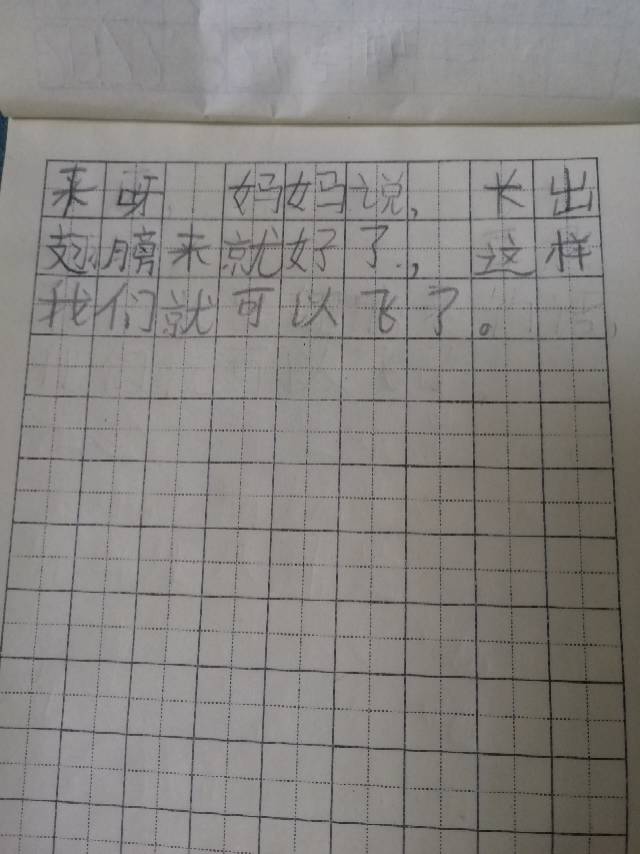 来呀 妈妈说，长出
翅膀来就好了，这样
我们就可以飞了。